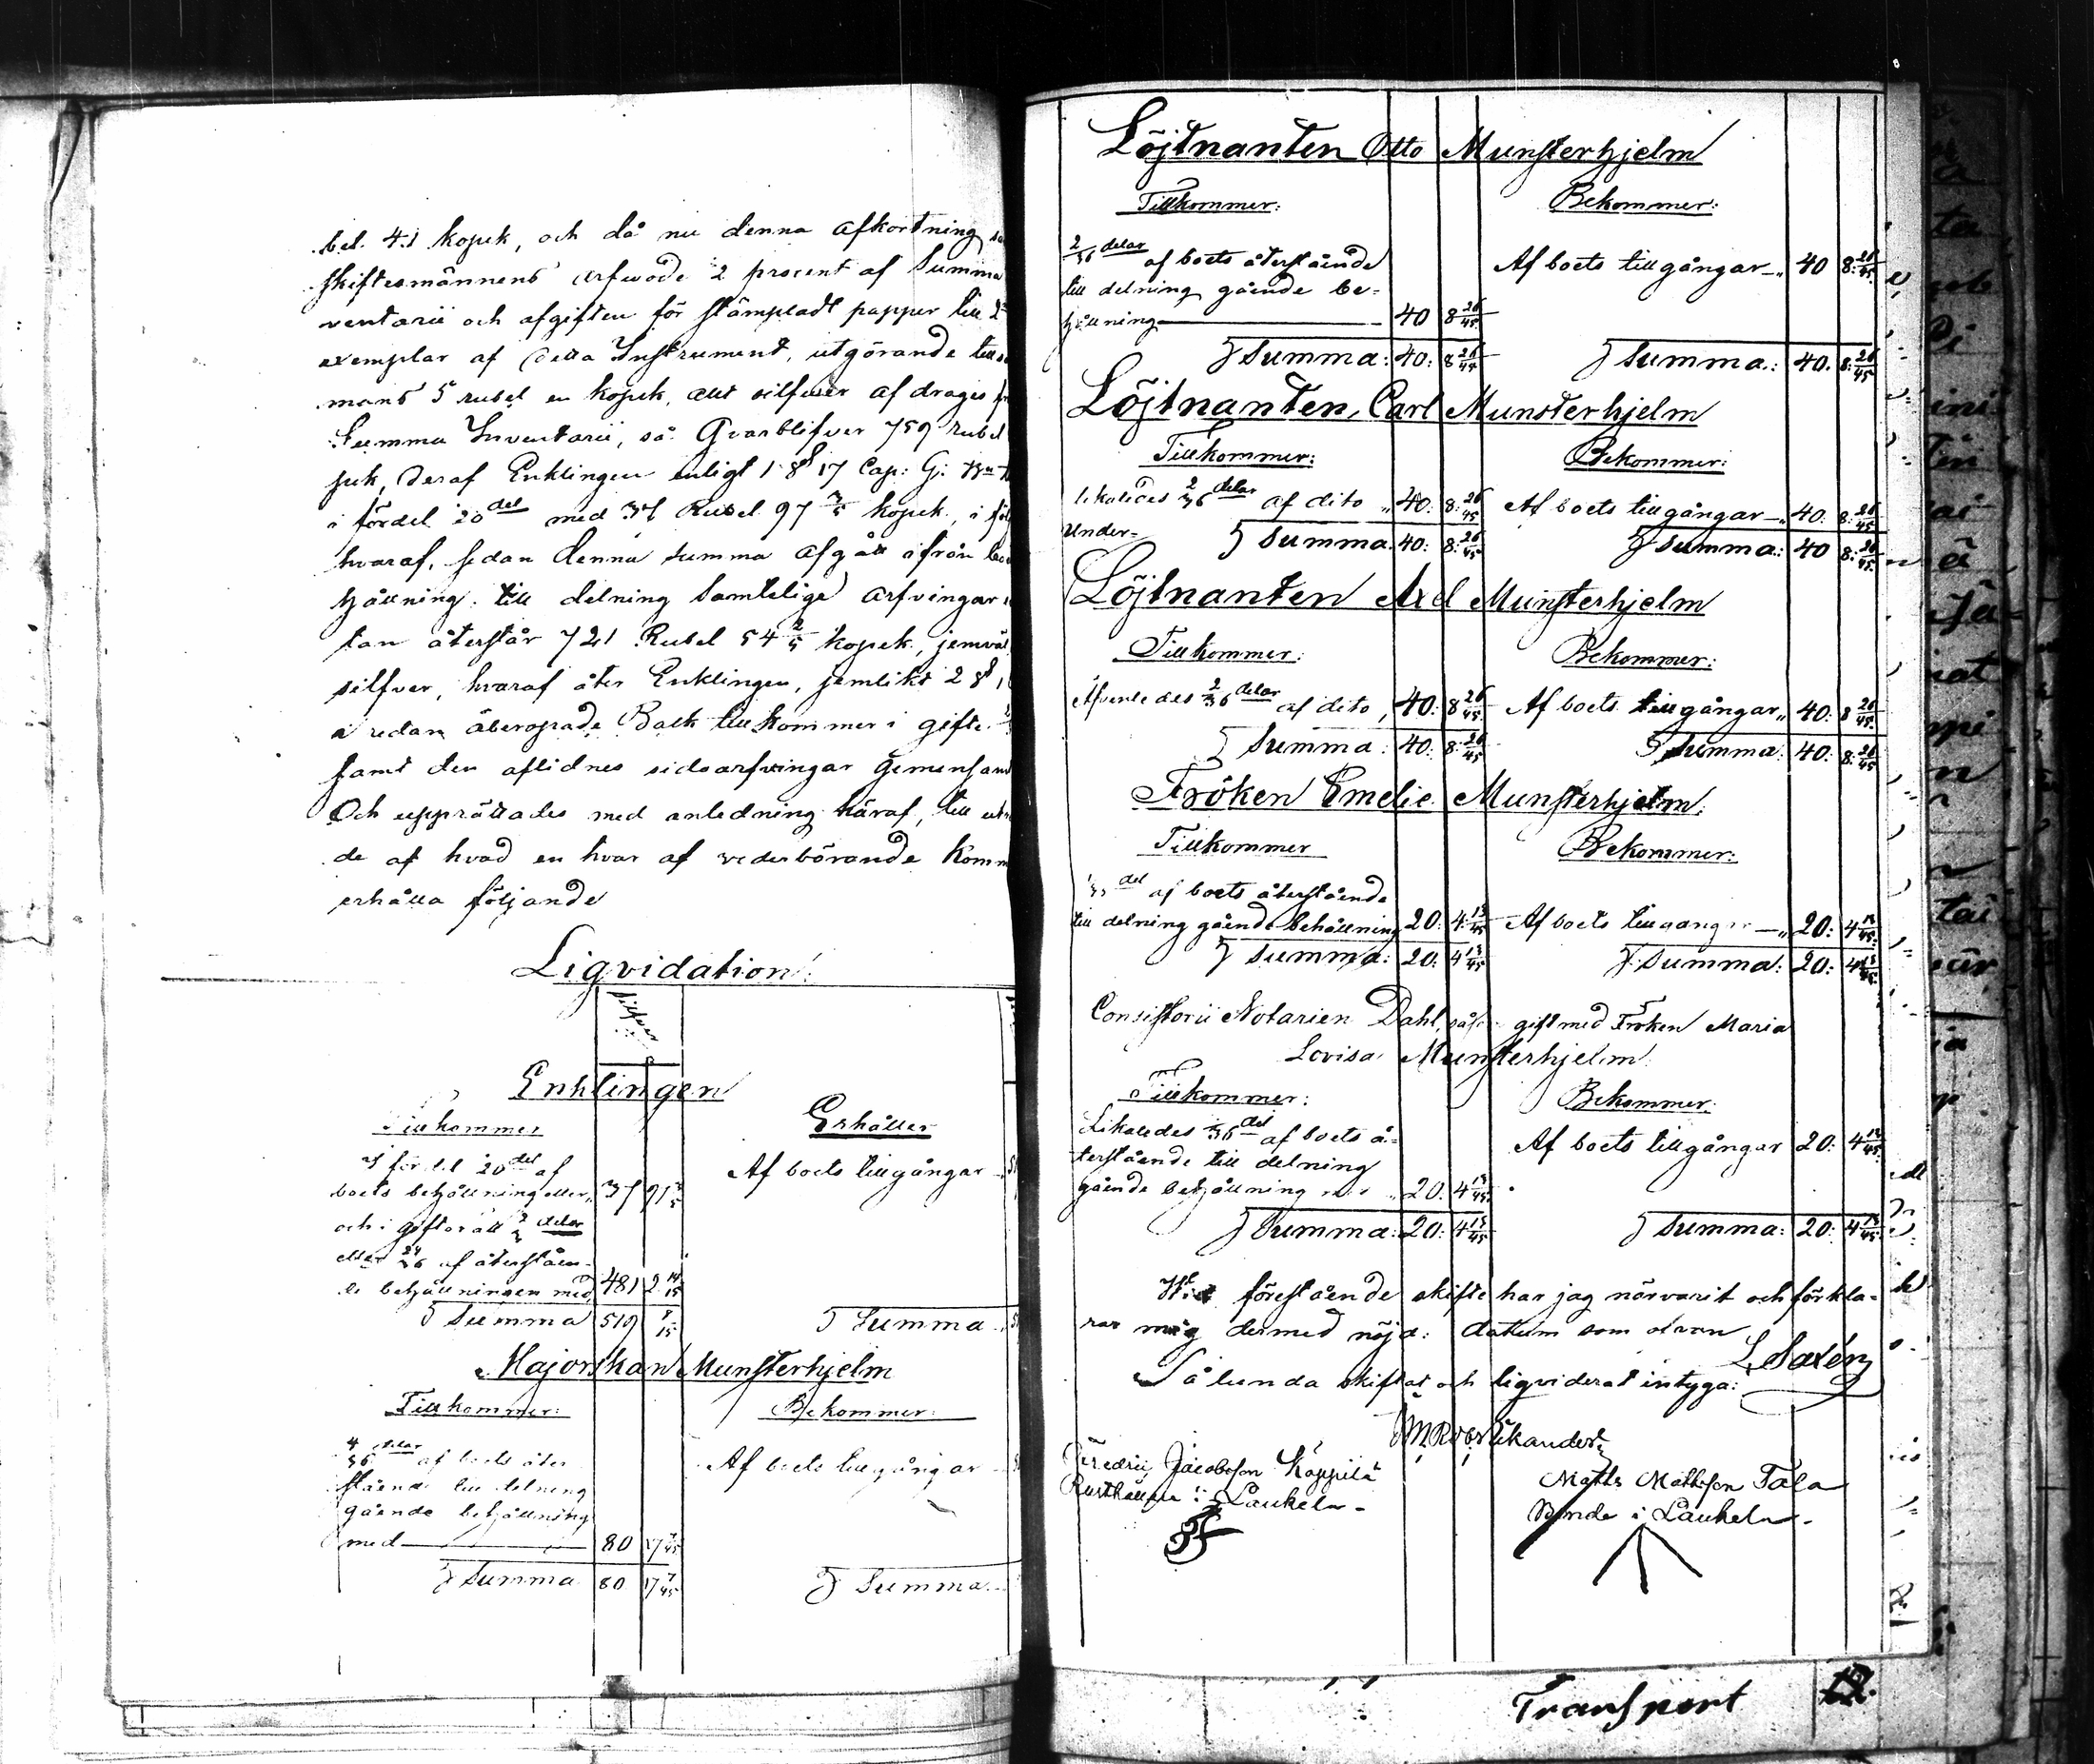 bel. 41 kopek, och då nu denna afkortning
skiftesmännens arfwode 2 procent af Summa
ventarii och afgiften för stämpladt papper till 2
exemplar af detta Instrument, utgörande till
mans 5 rubel en kopek, allt silfwer afdrages
Summa Inventarii, så qvarblifver 759 rubel
pek, deraf Enklingen enligt 1 § 17 Cap: G:
i fördel 20 del med 37 Rubel 97 3/5 kopek, i
hvaraf, sedan denna summa afgått ifrån
hållning till delning samtelige arfvingar
lan återstår 721 Rubel 54 2/5 kopek, jemväl
silfver, hvaraf åter Enklingen, jemlikt 2 §
a redan åberopade Balk tillkommer i gifto
samt den aflidnes sidoarfvingar gemensamt
Och upprättades med anledning häraf, till
de af hvad en hvar af vederbörande komm
erhålla följande
Liqvidation:
Silfver
Enklingen
Tillkommer Erhåller
I fördel 20 del af Af boets tillgångar
boets behållning eller 37 97 3/5
och i giftorätt 2/3 delar
eller 24/36 af återståen-
de behållningen med 481 2 14/15
Summa 519 8/15 Summa
Majorskan Munsterhjelm
Tillkommer: Bekommer:
4/36 delar af boets åter Af boets tillgångar
stående till delning
gående behållning
med 80 17 7/45
Summa 80 17 7/45 Summa
Löjtnanten Otto Munsterhjelm
Tillkommer: Bekommer:
2/36 delar af boets återstående Af boets tillgångar 40 8 26/45
till delning gående be-
hållning 40 8 26/45
Summa: 40: 8 26/45 Summa: 40. 8: 26/45
Löjtnanten, Carl Munsterhjelm
Tillkommer: Bekommer:
likaledes 2/36 delar af dito 40: 8: 26/45 Af boets tillgångar 40: 8: 26/45
Under- Summa 40: 8: 26/45 Summa: 40 8: 26/45
Löjtnanten Axel Munsterhjelm
Tillkommer: Bekommer:
Äfvenledes 2/36 delar af dito 40: 8 26/45 Af boets tillgångar 40: 8 26/45
Summa: 40: 8: 26/45 Summa: 40: 8: 26/45
Fröken Emelie Munsterhjelm:
Tillkommer Bekommer:
del af boets återstående
till delning gående behållning 20: 4: 13/45 Af boets tillgångar 20: 4 13/45
Summa: 20: 4 13/45 Summa: 20: 4 13/45
Consistorii Notarien Dahl, gift med Fröken Maria
Lovisa Munsterhjelm
Tillkommer: Bekommer:
Likaledes 1/36 del af boets å- Af boets tillgångar 20: 4 13/45
terstående till delning
gående behållning 20: 4 13/45
Summa: 20: 4 13/45 Summa: 20: 4 13/45
Wid förestående skifte har jag närvarit och förkla-
rar mig dermed nöjd: datum som ofvan
L. Saxén
Sålunda skiftat och liqviderat intyga:
Fredric Jacobsson Käppilä Matts Mattsson Tala
Rusthållare i Laukela- Bonde i Laukela-
Transport